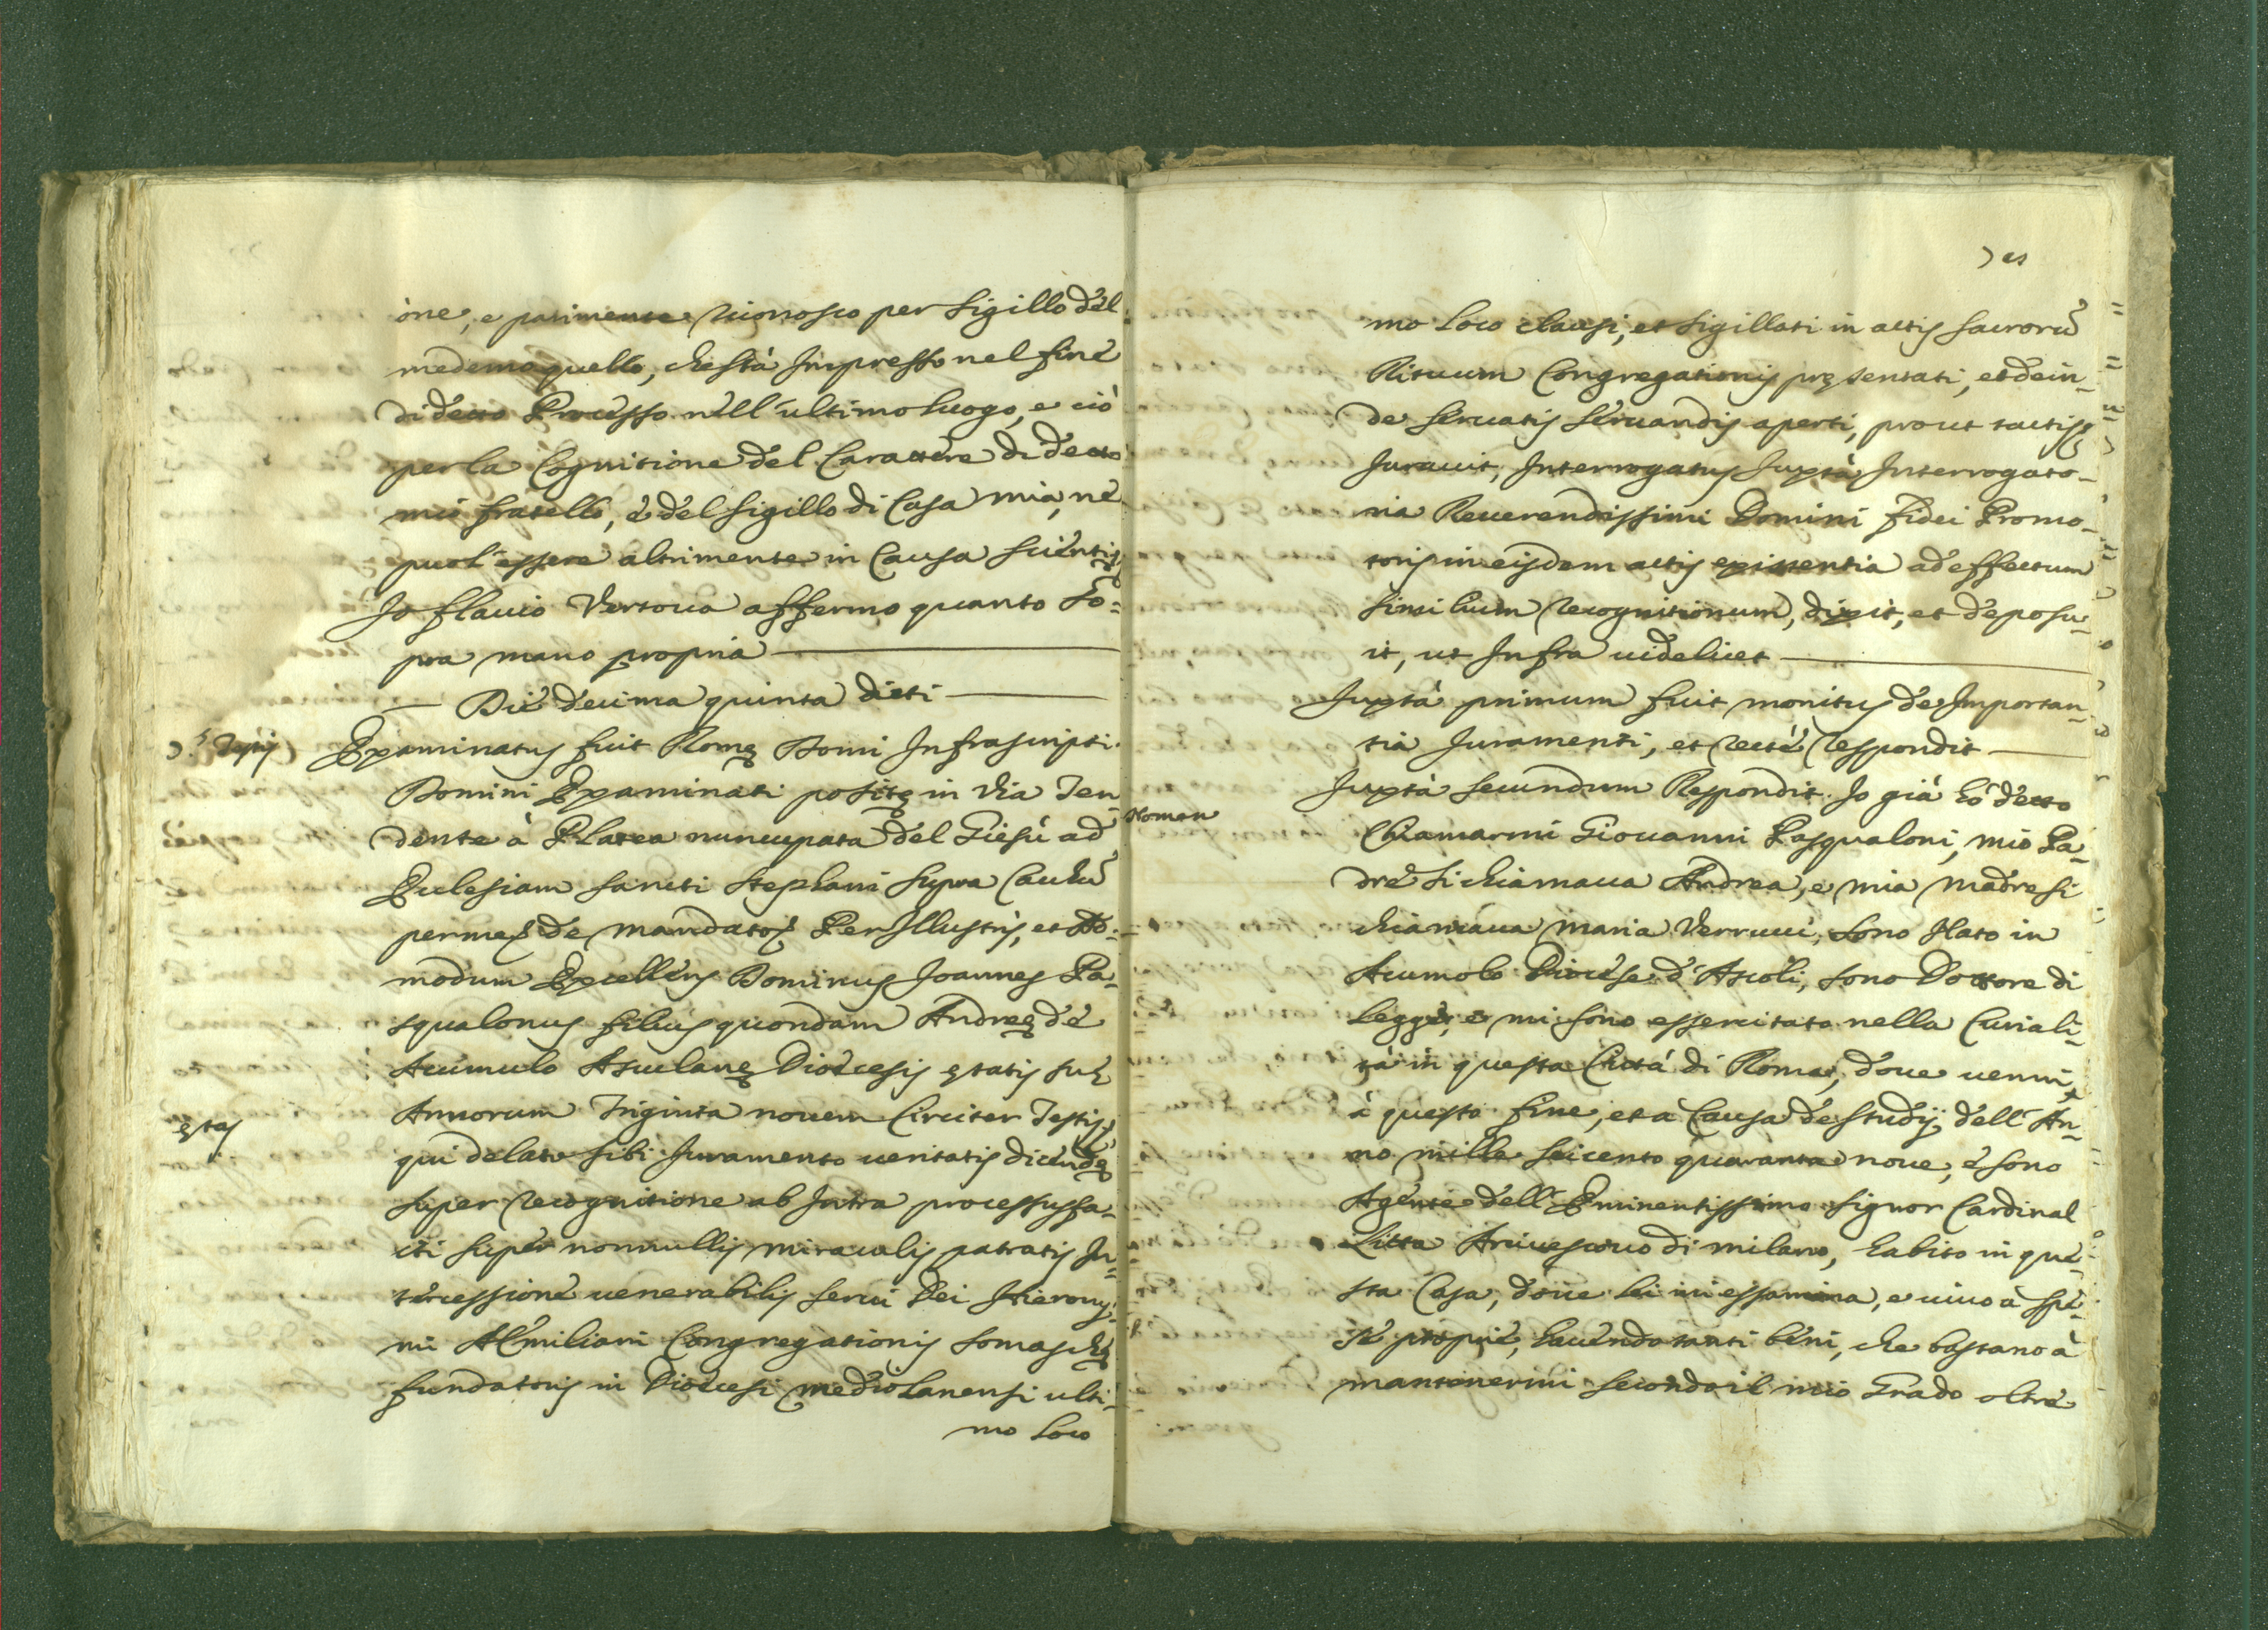 one, e parimente riconosco per sigillo del
medemo quello, che stà Impresso nel fine
di detto Processo nell'ultimo luogo, e ciò
per la Cognitione del Carattere di detto
mio fratello, è del sigillo di Casa mia, ne
puol' essere altrimente in Causa scientię
Io flauio Vertoua affermo quanto so=
pra mano propria
Die decima quinta dicti
3.s Testis
Examinatus fuit Romę Domi Infrascripti
Domini Examinati positę in Via Ten
dente à Platea nuncupata del Giesù ad
Ecclesiam sancti Stephani supra Caccħu
per me de mandato Per Illustris, et Ad-
modum Excellens Dominus Joannes Pa-
squalonus filius quondam Andreę de
Acumulo Asculanę Dioecesis ętatis suę
Annorum Triginta nouem Circiter Testis
ętas
qui delato sibi Juramento ueritatis dicendę
super recognitione ab Intra processus fa-
cti super nonnullis miraculis patratis In=
tercessione uenerabilis serui Dei Hierony-
mi AEmiliani Congregationis somaschę
fundatoris in Dioecesi mediolanensi ulti-
mo loco
mo loco clausi, et sigillati in actis sacrorũ
Rituum Congregationis pręsentati, et dein-
de seruatis seruandis aperti, prout tactis
Jurauit, Interrogatus Juxtà Interrogato-
ria Reuerendissimi Domini fidei Promo-
toris in eisdem actis existentia ad effectum
similium recognitionum, dixit, et deposu-
it, ut Infra uidelicet
Juxtà primum fuit monitus de Importan-
tia Juramenti, et rectè respondit
Juxtà secundum Respondit. Io già hò detto
Nomen
Chiamarmi Giouanni Pasqualoni, mio Pa-
dre si chiamaua Andrea, e mia madre si
chiamaua maria Verrucci, sono Nato in
Acumolo Diocese d'Ascoli, sono Dottore di
legge, e mi sono essercitato nella Curiali-
tà in questa Città di Roma, doue uenni
à questo fine, et a Causa de studij, dell'An-
no mille seicento quaranta noue, è sono
Agente dell'Eminentissimo signor Cardinal
Litta Arciuescouo di milano, habito in que-
sta Casa, doue lei mi essamina, e uiuo à spe-
se proprie, hauendo tanti beni, che bastano à
mantenermi secondo il mio Grado oltre